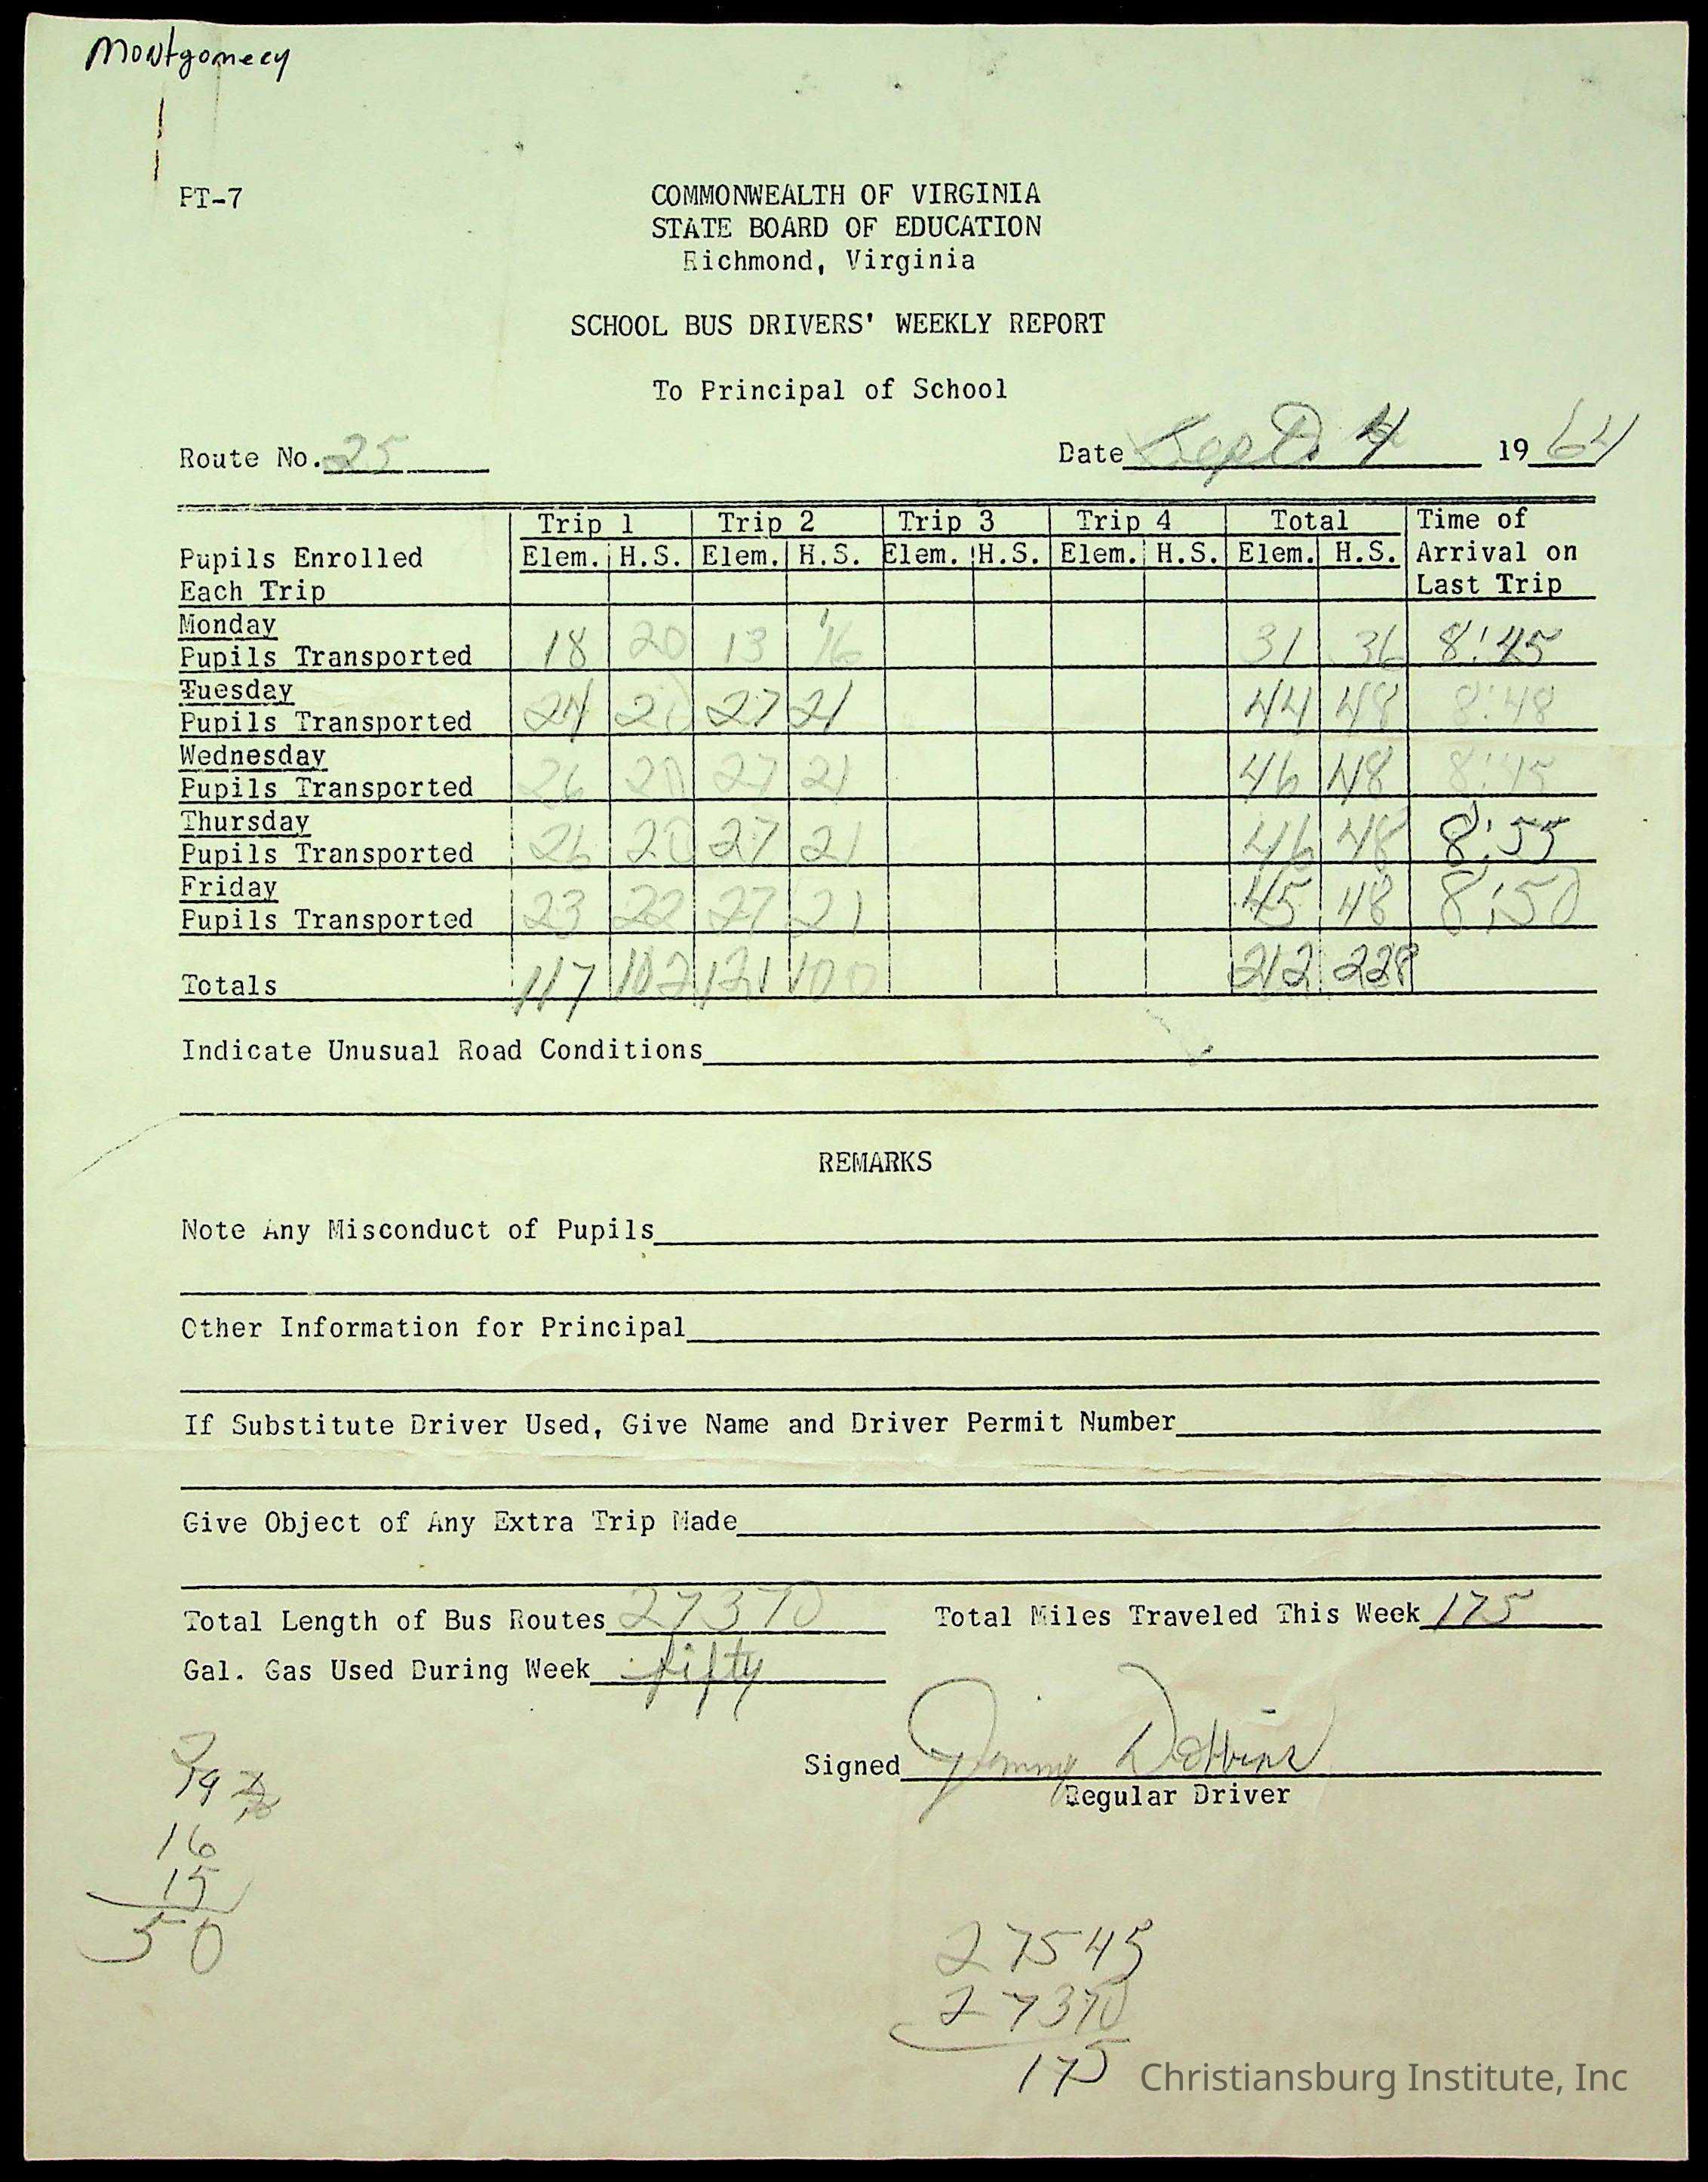 Montgomery
PT-7
COMMONWEALTH OF VIRGINIA
STATE BOARD OF EDUCATION
Richmond, Virginia
SCHOOL BUS DRIVERS' WEEKLY REPORT
To Principal of School
Route No. 25 Date Sept. 4 1964
Trip 1 Trip 2 Trip 3 Trip 4 Total Time of
Pupils Enrolled Elem. H.S. Elem. H.S. Elem. H.S. Elem. H.S. Elem. H.S. Arrival on
Each Trip Last Trip
Monday
Pupils Transported 18 20 13 16 31 36 8:45
Tuesday
Pupils Transported 24 20 27 21 44 48 8:48
Wednesday
Pupils Transported 26 20 27 21 46 48 8:45
Thursday
Pupils Transported 26 20 27 21 46 48 8:55
Friday
Pupils Transported 23 22 27 21 45 48 8:50
Totals 117 102 121 100 212 228
Indicate Unusual Road Conditions
REMARKS
Note Any Misconduct of Pupils
Other Information for Principal
If Substitute Driver Used, Give Name and Driver Permit Number
Give Object of Any Extra Trip Made
Total Length of Bus Routes 27370 Total Miles Traveled This Week 175
Gal. Gas Used During Week fifty
Signed Jimmy Dobbins
Regular Driver
19
16
15
50
27545
27370
175
Christiansburg Institute, Inc